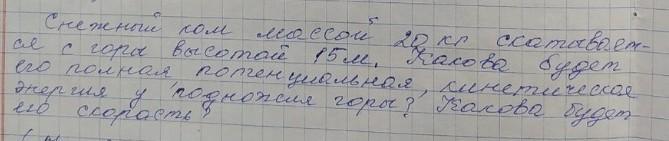 Снежный ком массой 20 кг скатывает-
ся с горы высотой 15м. Какова будет
его полная, потенциальная, кинетическая
энергия у подножия горы? Какова будет
его скорость?